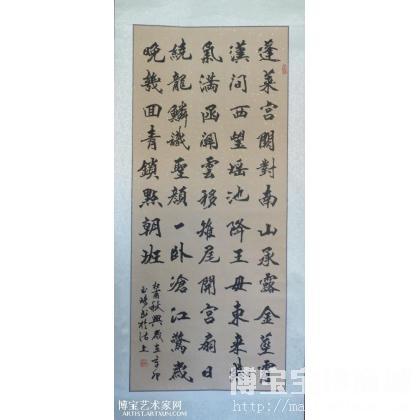 蓬萊宫闕對南山承露金莖霄
漢間西望瑶池降王母東来紫
氣滿函関雲移雉尾開宫扇日
繞龍鱗識聖顔一卧滄江驚歲
晚幾回青鎖點朝班
杜甫秋興歲在辛卯
書於沽上
博宝艺术家网
artist.artxun.com